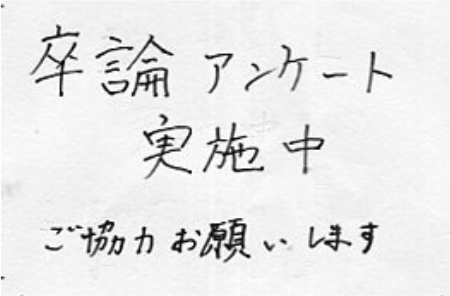 卒論 アンケート
実施中
ご協力お願いします